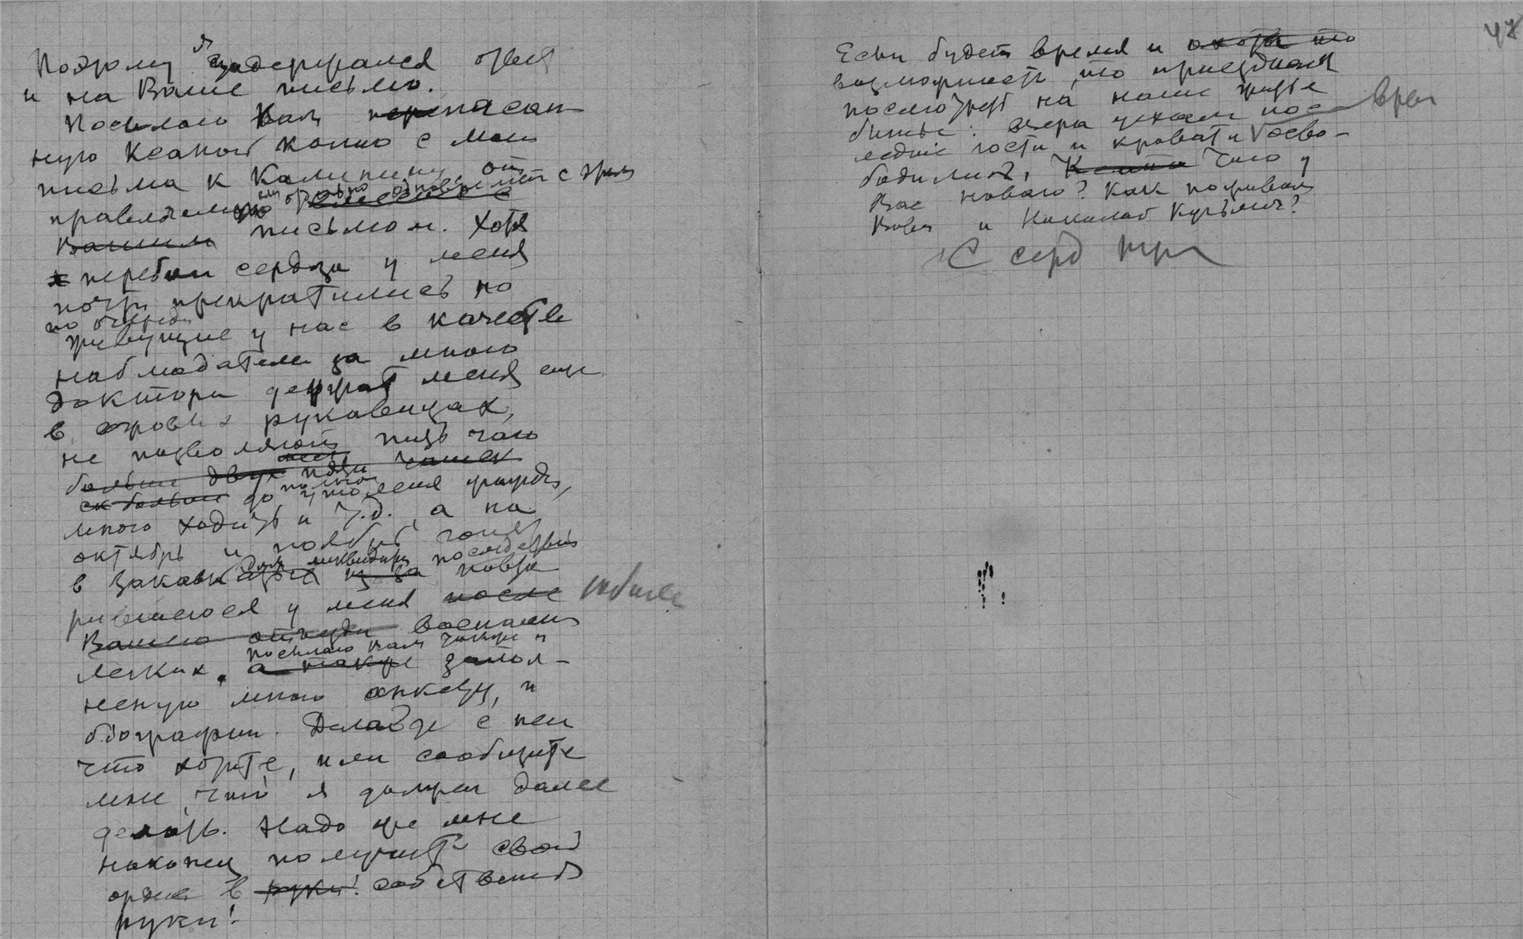 Поэтому я задержался
и на Ваше письмо.
Посылаю Вам переписан-
ную Ксаной копию с моего
письма к Калинину, от
правленному одновремен с этим
Вашим письмом. Хотя
перебои сердца у меня
почти прекратились но
по очереди
живущие у нас в качестве
наблюдателей за мною
доктора держат меня еще
в ежовых рукавицах,
не позволяют пить чаю
больше двух чашек
больше до меня
много ходить и т.д., а на
октябрь и ноябрь гонят
в Закавказье для ликвидации последствий
у меня после
Вашего отъезда воспаления
легких. а также посылаю Вам также и запол-
ненную мною анкету, и
биографии. Делайте с ней
что хотите, или сообщите
мне что я должен далее
делать. Надо же мне
наконец получить свой
орден в руки! собственные
руки!
47
Если будет время и охота то
возможность, то приезжайте
посмотреть на наше житье
бытье. Вчера уехали пос-
ледние гости и кровати осво-
бодились. Чего у
Вас нового? Как поживают
и Николай Кузьмич?
С серд прив